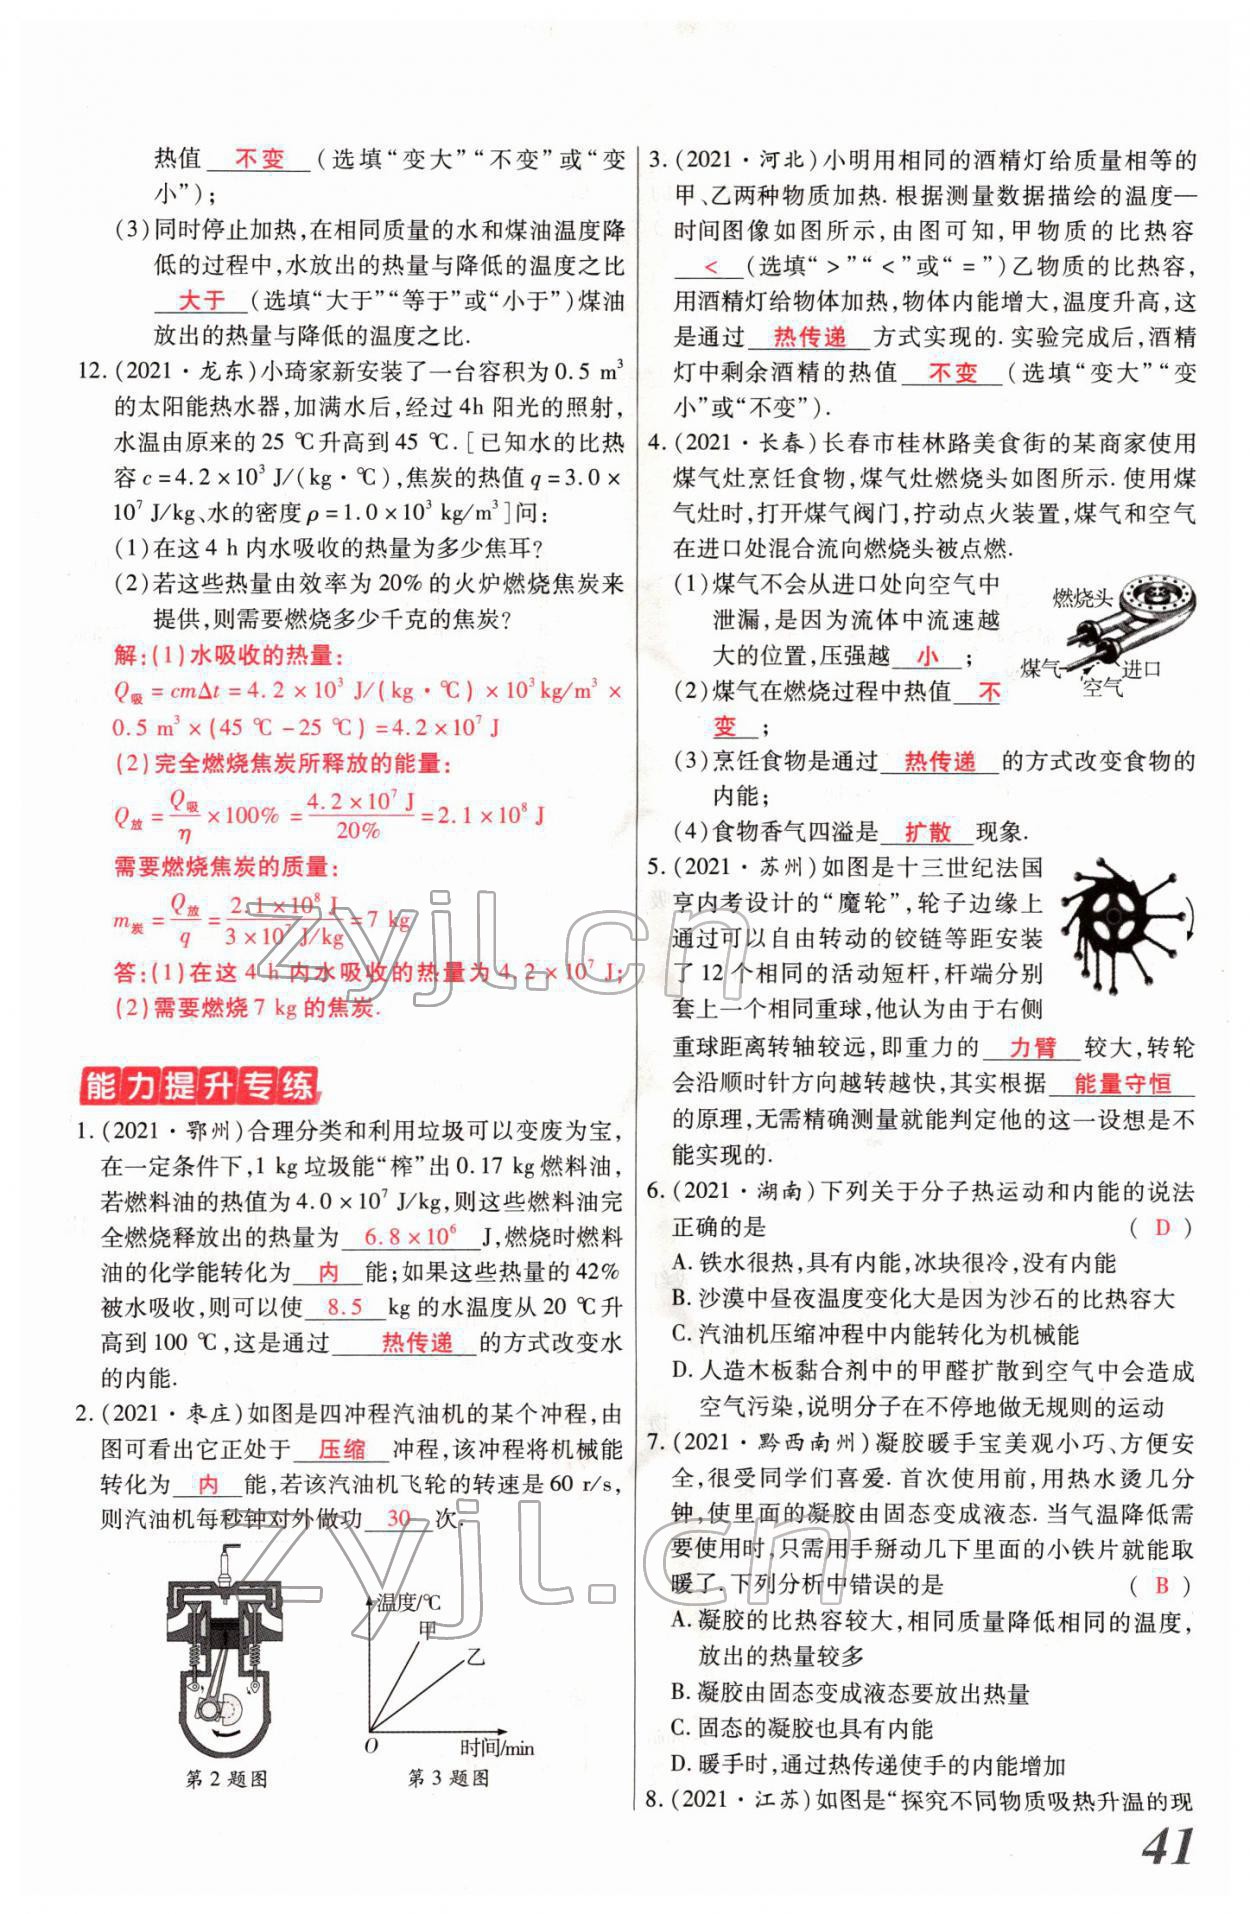 热值 不变 (选填“变大”“不变”或“变
小”);
(3)同时停止加热,在相同质量的水和煤油温度降
低的过程中,水放出的热量与降低的温度之比
大于 (选填“大于”“等于”或“小于”)煤油
放出的热量与降低的温度之比.
12.(2021·龙东)小琦家新安装了一台容积为0.5 m³
的太阳能热水器,加满水后,经过4h阳光的照射,
水温由原来的25 ℃升高到45 ℃.[已知水的比热
容c=4.2×10³ J/(kg·℃),焦炭的热值q=3.0×
10⁷ J/kg、水的密度ρ=1.0×10³ kg/m³]问:
(1)在这4 h内水吸收的热量为多少焦耳?
(2)若这些热量由效率为20%的火炉燃烧焦炭来
提供,则需要燃烧多少千克的焦炭?
解:(1)水吸收的热量:
Q吸=cmΔt=4.2×10³ J/(kg·℃)×10³kg/m³×
0.5 m³×(45 ℃-25 ℃)=4.2×10⁷ J
(2)完全燃烧焦炭所释放的能量:
Q放=Q吸/η×100%=4.2×10⁷ J/20%=2.1×10⁸ J
需要燃烧焦炭的质量:
m炭=Q放/q=2.1×10⁸ J/3×10⁷ J/kg=7 kg
答:(1)在这4 h内水吸收的热量为4.2×10⁷ J;
(2)需要燃烧7 kg的焦炭.
能力提升专练
1.(2021·鄂州)合理分类和利用垃圾可以变废为宝,
在一定条件下,1 kg垃圾能“榨”出0.17 kg燃料油,
若燃料油的热值为4.0×10⁷ J/kg,则这些燃料油完
全燃烧释放出的热量为 6.8×10⁶ J,燃烧时燃料
油的化学能转化为 内 能;如果这些热量的42%
被水吸收,则可以使 8.5 kg的水温度从20 ℃升
高到100 ℃,这是通过 热传递 的方式改变水
的内能.
2.(2021·枣庄)如图是四冲程汽油机的某个冲程,由
图可看出它正处于 压缩 冲程,该冲程将机械能
转化为 内 能,若该汽油机飞轮的转速是60 r/s,
则汽油机每秒钟对外做功 30 次.
温度/℃
甲
乙
O
时间/min
第2题图
第3题图
3.(2021·河北)小明用相同的酒精灯给质量相等的
甲、乙两种物质加热.根据测量数据描绘的温度—
时间图像如图所示,由图可知,甲物质的比热容
< (选填“>”“<”或“=”)乙物质的比热容,
用酒精灯给物体加热,物体内能增大,温度升高,这
是通过 热传递 方式实现的.实验完成后,酒精
灯中剩余酒精的热值 不变 (选填“变大”“变
小”或“不变”).
4.(2021·长春)长春市桂林路美食街的某商家使用
煤气灶烹饪食物,煤气灶燃烧头如图所示.使用煤
气灶时,打开煤气阀门,拧动点火装置,煤气和空气
在进口处混合流向燃烧头被点燃.
(1)煤气不会从进口处向空气中
泄漏,是因为流体中流速越
大的位置,压强越 小 ;
(2)煤气在燃烧过程中热值 不
变 ;
燃烧头
煤气
进口
空气
(3)烹饪食物是通过 热传递 的方式改变食物的
内能;
(4)食物香气四溢是 扩散 现象.
5.(2021·苏州)如图是十三世纪法国
亨内考设计的“魔轮”,轮子边缘上
通过可以自由转动的铰链等距安装
了12个相同的活动短杆,杆端分别
套上一个相同重球,他认为由于右侧
重球距离转轴较远,即重力的 力臂 较大,转轮
会沿顺时针方向越转越快,其实根据 能量守恒
的原理,无需精确测量就能判定他的这一设想是不
能实现的.
6.(2021·湖南)下列关于分子热运动和内能的说法
正确的是 ( D )
A.铁水很热,具有内能,冰块很冷,没有内能
B.沙漠中昼夜温度变化大是因为沙石的比热容大
C.汽油机压缩冲程中内能转化为机械能
D.人造木板黏合剂中的甲醛扩散到空气中会造成
空气污染,说明分子在不停地做无规则的运动
7.(2021·黔西南州)凝胶暖手宝美观小巧、方便安
全,很受同学们喜爱.首次使用前,用热水烫几分
钟,使里面的凝胶由固态变成液态.当气温降低需
要使用时,只需用手掰动几下里面的小铁片就能取
暖了.下列分析中错误的是 ( B )
A.凝胶的比热容较大,相同质量降低相同的温度,
放出的热量较多
B.凝胶由固态变成液态要放出热量
C.固态的凝胶也具有内能
D.暖手时,通过热传递使手的内能增加
8.(2021·江苏)如图是“探究不同物质吸热升温的现
41
zyjl.cn
zyjl.cn